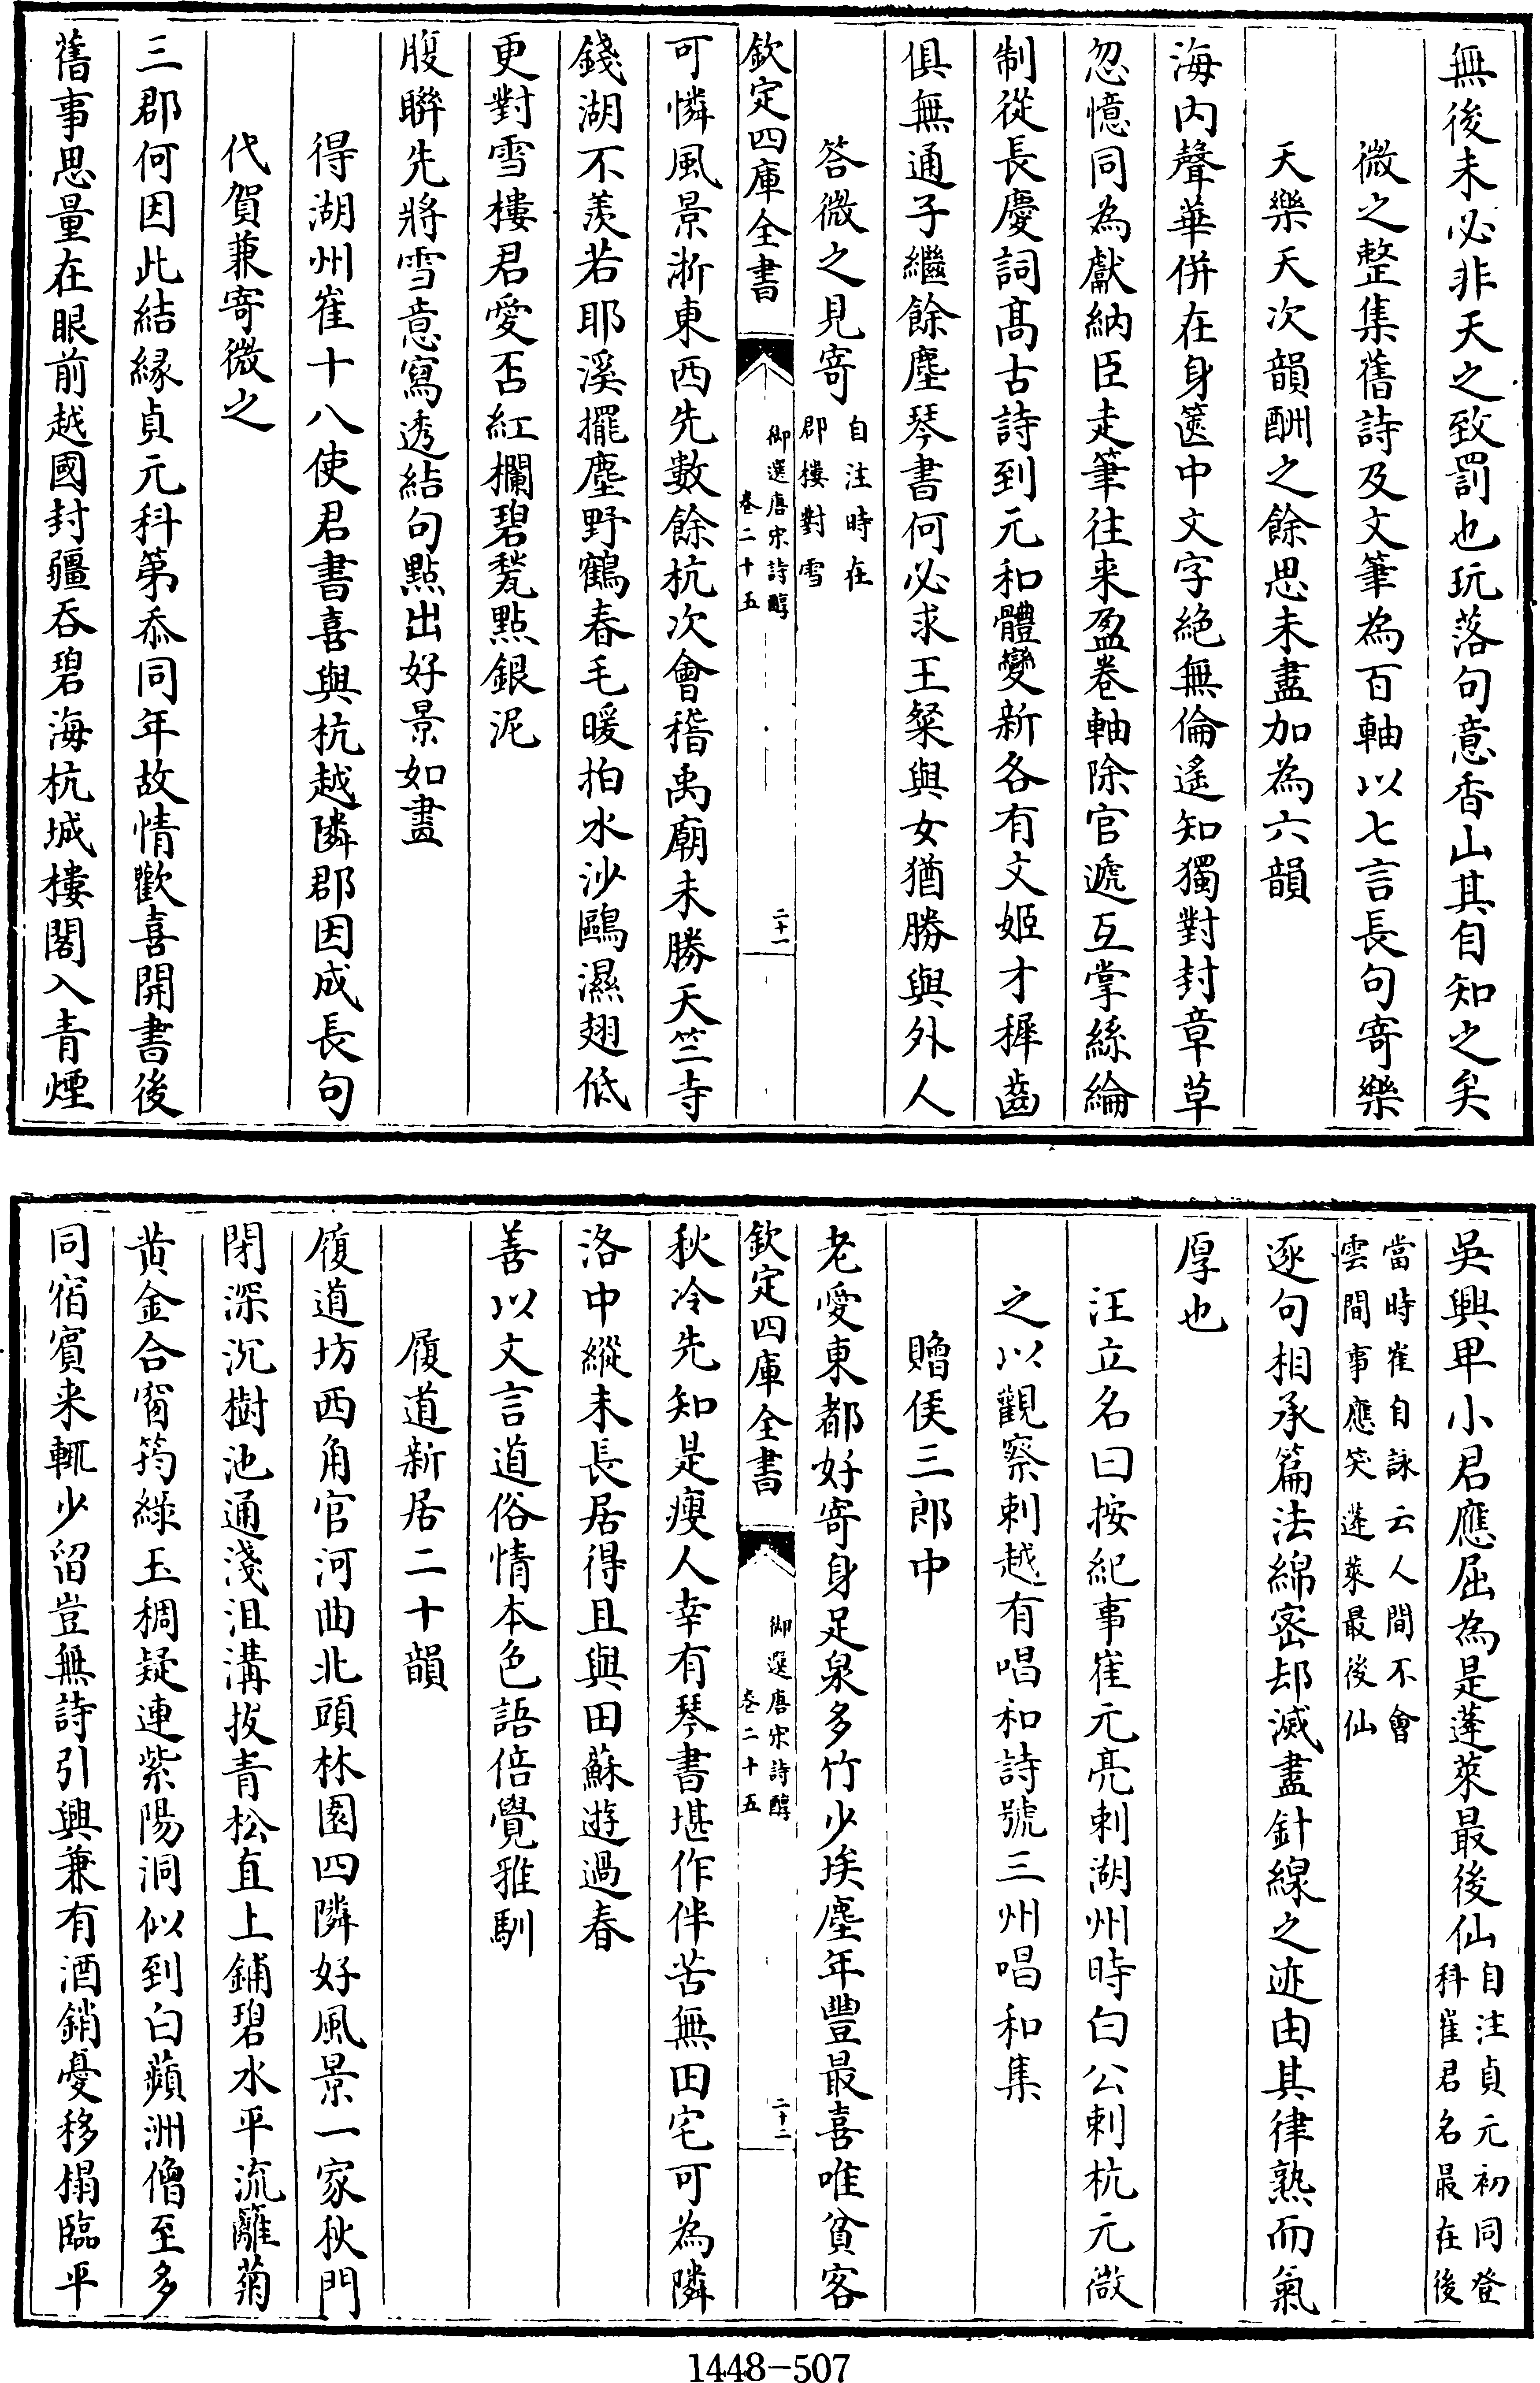 無後未必非天之致罰也玩落句意香山其自知之矣
微之整集舊詩及文筆為百軸以七言長句寄樂
天樂天次韻酬之餘思未盡加為六韻
海內聲華併在身篋中文字絶無倫遙知獨對封章草
忽憶同為獻納臣走筆往来盈卷軸除官遞互掌絲綸
制從長慶詞髙古詩到元和體變新各有文姬才穉齒
俱無通子繼餘塵琴書何必求王粲與女猶勝與外人
答微之見寄自注時在
郡樓對雪
欽定四庫全書
御選唐宋詩醇
卷二十五
二十一
可憐風景浙東西先數餘杭次會稽禹廟未勝天竺寺
錢湖不羨若耶溪擺塵野鶴春毛暖拍水沙鷗濕翅低
更對雪樓君愛否紅欄碧甃點銀泥
腹聯先將雪意寫透結句點出好景如畫
得湖州崔十八使君書喜與杭越隣郡因成長句
代賀兼寄微之
三郡何因此結緣貞元科第忝同年故情歡喜開書後
舊事思量在眼前越國封疆吞碧海杭城樓閣入青煙
吳興卑小君應屈為是蓬萊最後仙自注貞元初同登
科崔君名最在後
當時崔自詠云人間不會
雲間事應笑蓬萊最後仙
逐句相承篇法綿密却滅盡針線之迹由其律熟而氣
厚也
汪立名曰按紀事崔元亮刺湖州時白公刺杭元微
之以觀察刺越有唱和詩號三州唱和集
贈侯三郎中
老愛東都好寄身足泉多竹少埃塵年豐最喜唯貧客
欽定四庫全書
御選唐宋詩醇
卷二十五
二十二
秋冷先知是瘦人幸有琴書堪作伴苦無田宅可為隣
洛中縱未長居得且與田蘇遊過春
善以文言道俗情本色語倍覺雅馴
履道新居二十韻
履道坊西角官河曲北頭林園四隣好風景一家秋門
閉深沉樹池通淺沮溝拔青松直上鋪碧水平流籬菊
黃金合窗筠綠玉稠疑連紫陽洞似到白蘋洲僧至多
同宿賓来輒少留豈無詩引興兼有酒銷憂移榻臨平
1448-507